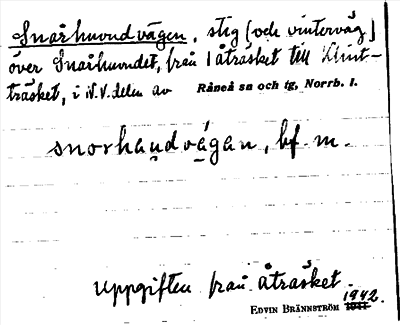 Snårhuvudvägen, stig (och vinterväg)
över Snårhuvudet, från Åträsket till Klint-
träsket, i N.V. delen av Råneå sn och tg, Norrb. l.
snorhau̯dvá̱gan, bf. m.
Uppgiften från Åträsket
EDVIN BRÄNNSTRÖM 1942.